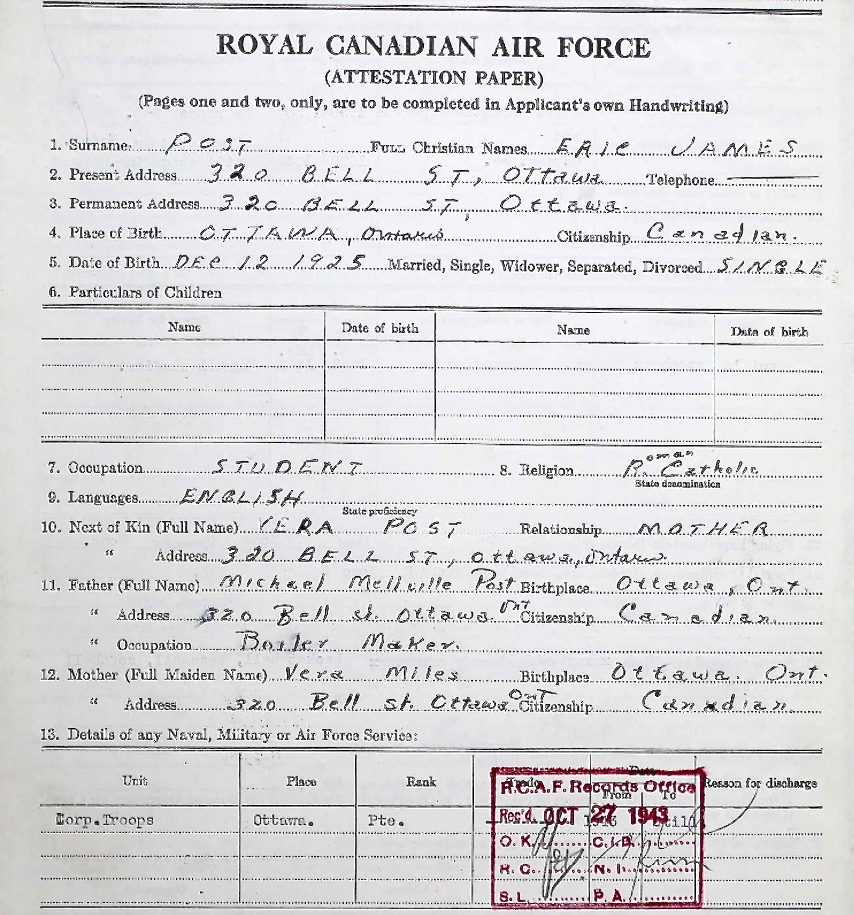 ROYAL CANADIAN AIR FORCE
(ATTESTATION PAPER)
(Pages one and two, only, are to be completed in Applicant's own Handwriting)
1. Surname POST Full Christian Names ERIC JAMES
2. Present Address 320 BELL ST, OTTawa Telephone
3. Permanent Address 320 BELL ST, Ottawa.
4. Place of Birth OTTAWA, Ontario Citizenship Canadian.
5. Date of Birth DEC 12 1925 Married, Single, Widower, Separated, Divorced SINGLE
6. Particulars of Children
Name Date of birth Name Date of birth
7. Occupation STUDENT 8. Religion Roman Catholic
State denomination
9. Languages ENGLISH
State proficiency
10. Next of Kin (Full Name) VERA POST Relationship MOTHER
" Address 320 BELL ST, Ottawa, Ontario
11. Father (Full Name) Michael Mellville Post Birthplace Ottawa, Ont.
" Address 320 Bell st. Ottawa Ont Citizenship Canadian.
" Occupation Boiler Maker.
12. Mother (Full Maiden Name) Vera Miles Birthplace Ottawa. Ont.
" Address 320 Bell st. Ottawa Ont Citizenship Canadian.
13. Details of any Naval, Military or Air Force Service:
Unit Place Rank Trade Date From To Reason for discharge
Corp.Troops Ottawa. Pte.
R.C.A.F. Records Office
Rec'd. OCT 27 1943
O.K. C.I.B.
R.C. N.I.
S.L. P.A.